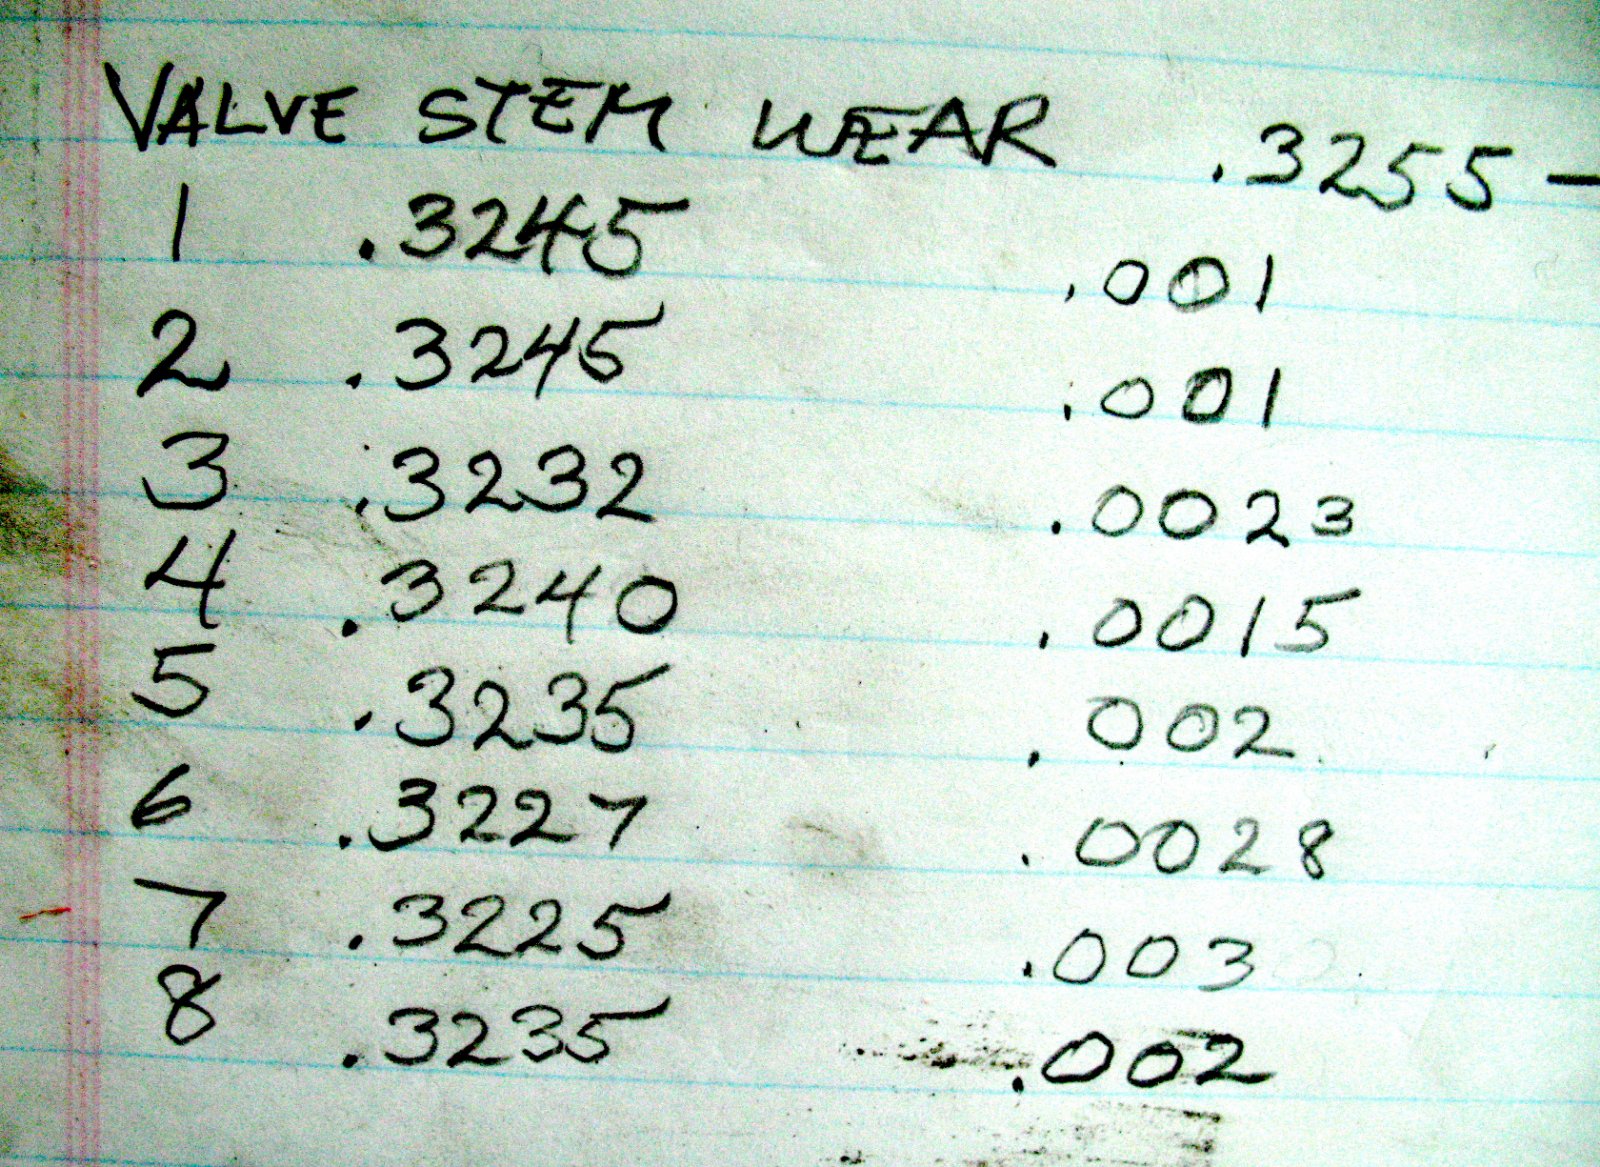 VALVE STEM WEAR .3255 –
1 .3245 .001
2 .3245 .001
3 .3232 .0023
4 .3240 .0015
5 .3235 .002
6 .3227 .0028
7 .3225 .003
8 .3235 .002